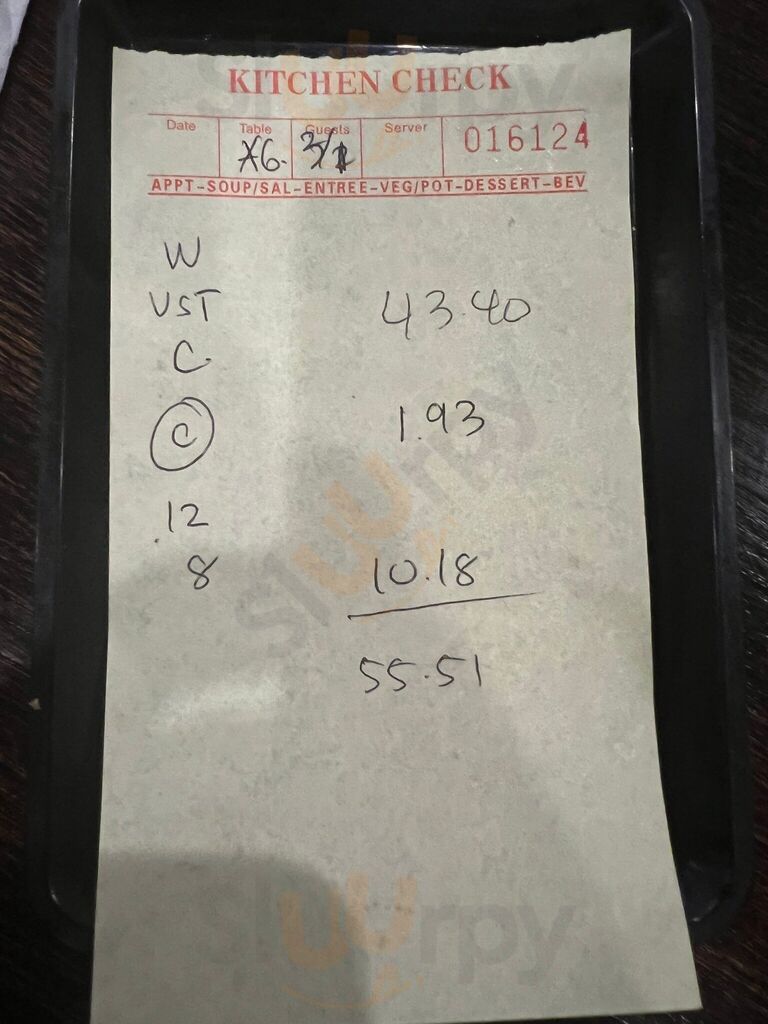 KITCHEN CHECK
Date Table Guests Server 016124
X6. 3/1
APPT-SOUP/SAL-ENTREE-VEG/POT-DESSERT-BEV
W
VST 43.40
C.
C 1.93
12
8 10.18
55.51
slurpy
slurpy
slurpy